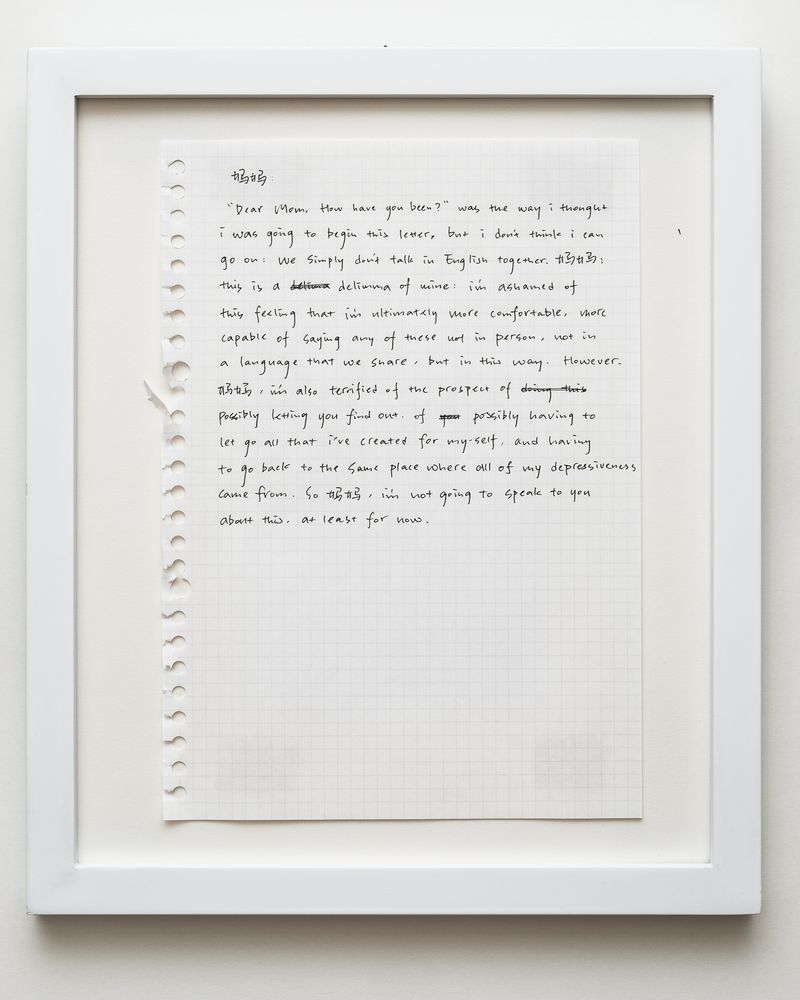 妈妈:
"Dear Mom, How have you been?" was the way i thought
i was going to begin this letter, but i don't think i can
go on: we simply don't talk in English together. 妈妈:
this is a delima delimma of mine: i'm ashamed of
this feeling that i'm ultimately more comfortable, more
capable of saying any of these not in person, not in
a language that we share, but in this way. However.
妈妈, i'm also terrified of the prospect of doing this
possibly letting you find out. of you possibly having to
let go all that i've created for my-self, and having
to go back to the same place where all of my depressiveness
came from. So 妈妈, i'm not going to speak to you
about this. at least for now.